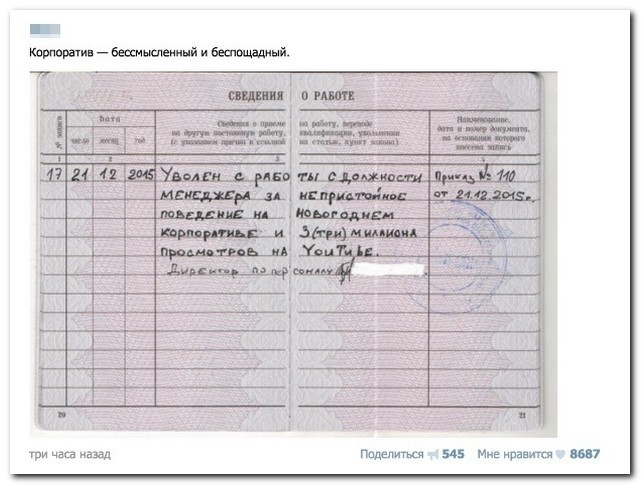 Корпоратив — бессмысленный и беспощадный.
СВЕДЕНИЯ О РАБОТЕ
№ записи
Дата
число месяц год
Сведения о приеме на работу, переводе
на другую постоянную работу, квалификации, увольнении
(с указанием причин и ссылкой на статью, пункт закона)
Наименование,
дата и номер документа,
на основании которого
внесена запись
1 2 3 4
17 21 12 2015 Уволен с работы с должности Приказ № 110
менеджера за непристойное от 21.12.2015г.
поведение на новогоднем
корпоративе и 3(три) миллиона
просмотров на YouTube.
Директор по персоналу
20 21
три часа назад Поделиться 545 Мне нравится 8687